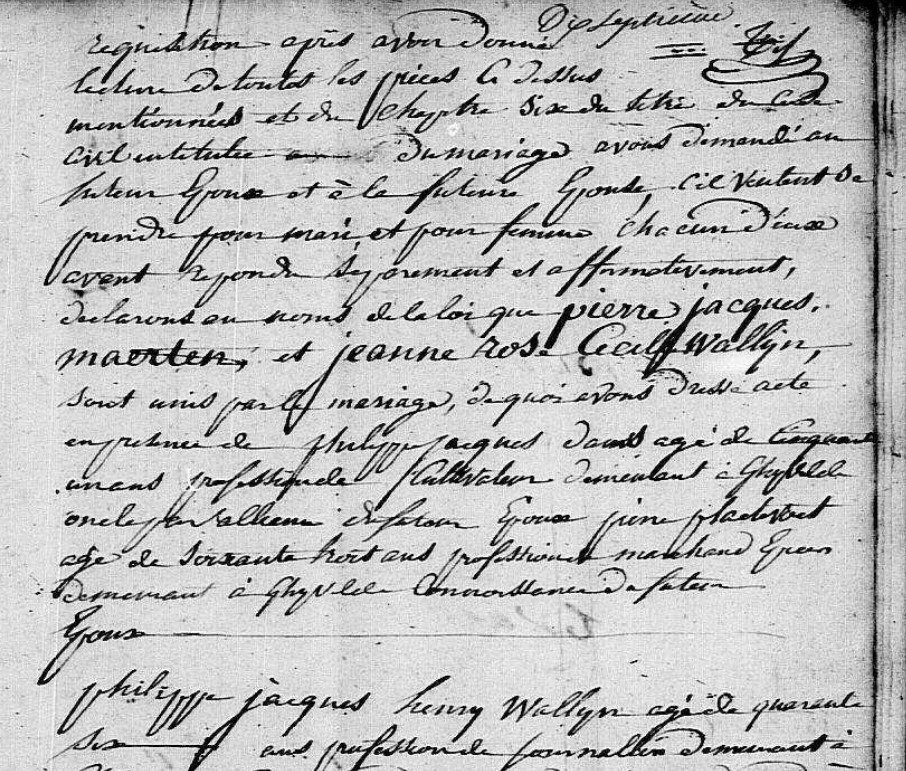 Dixseptieme.
requisition apres avoir donné
lecture de toutes les pieces ci dessus
mentionnées et du Chapitre Six du titre du Code
civil intitulée du mariage avons demandé au
futur Epoux et à la future Epouse, S'il veulent se
prendre pour mari et pour femme Chacun d'eux
ayent repondu Separement et affirmativement,
declarons au noms de la loi que pierre jacques
maerten, et jeanne rose Cecile Wallyn,
sont unis par le mariage, de quoi avons dressé acte
en presence de philippe jacques agé de Cinquante
un ans profession de Cultivateur demeurant à Ghyvelde
oncle par allience du futur Epoux
agé de soixante huit ans profession de marchand Epicier
demeurant à Ghyvelde Connoissance du futur
Epoux
philippe jacques henry Wallyn agé de quarante
six ans profession de journallier demeurant à